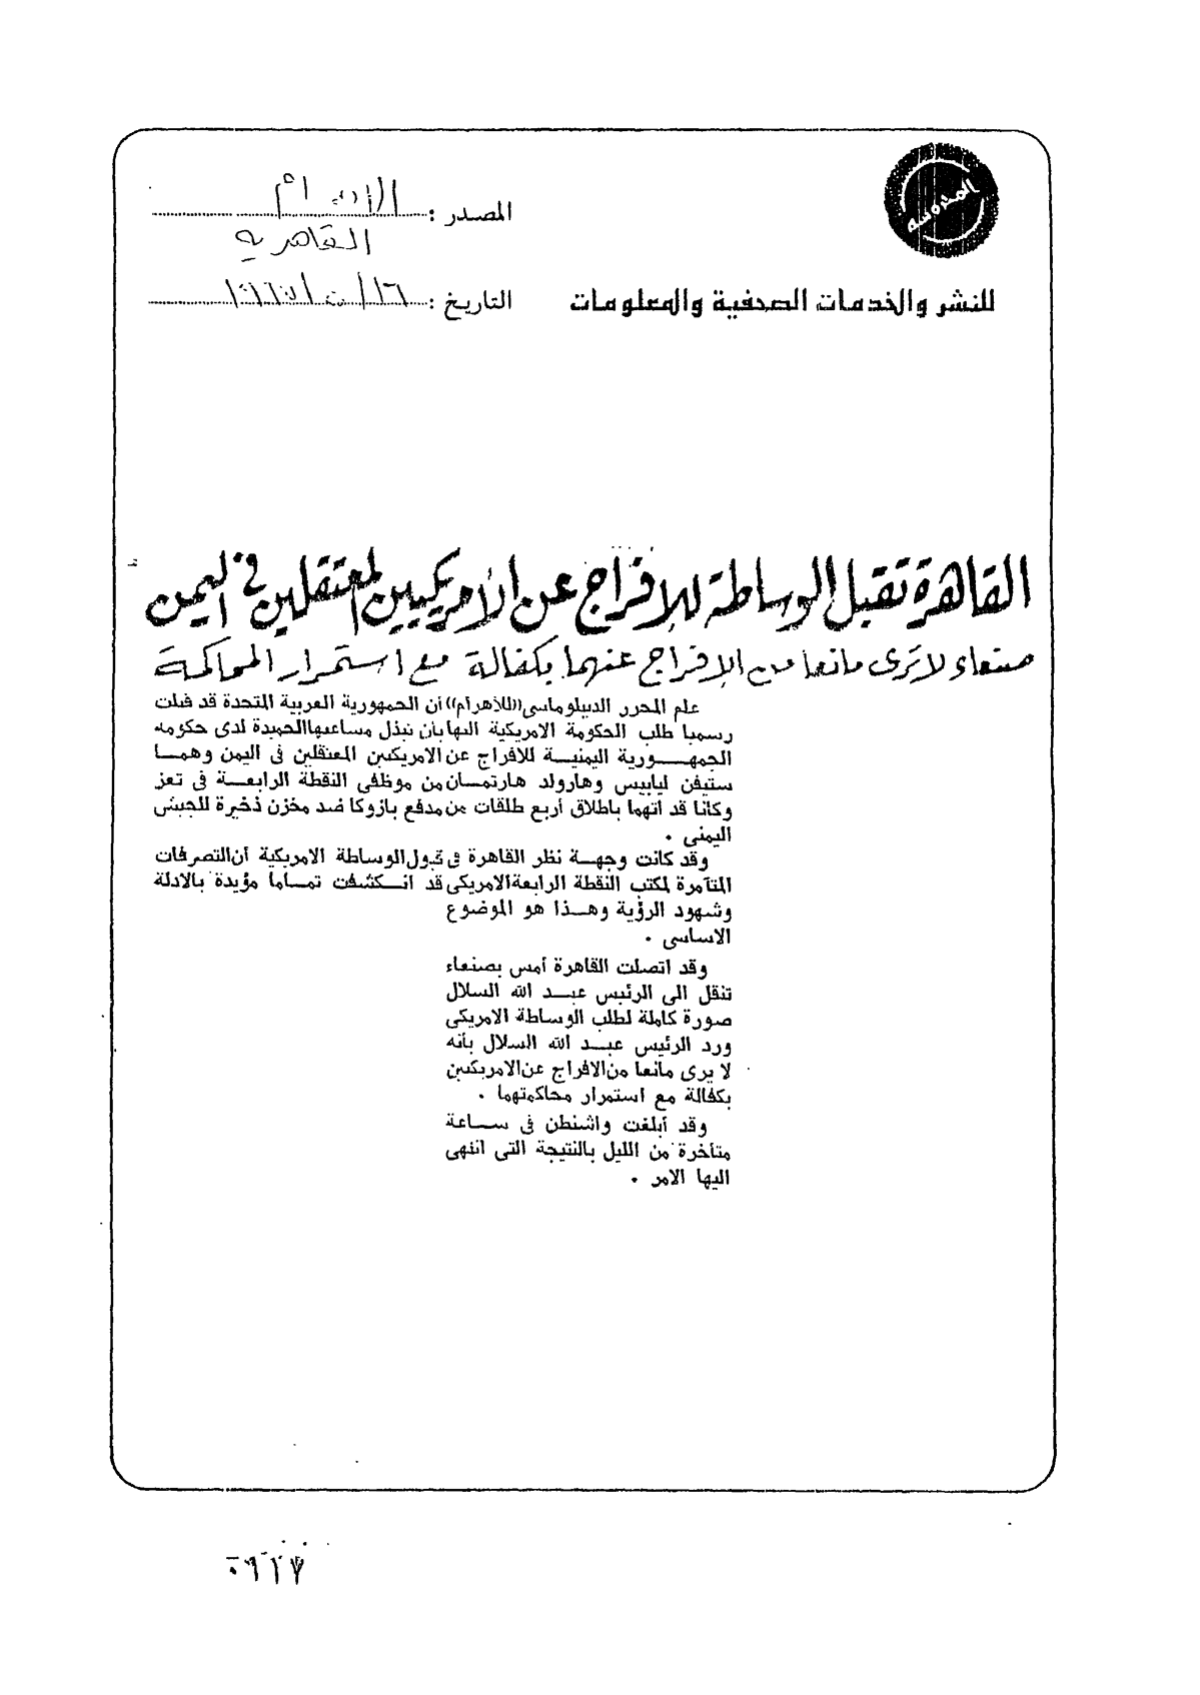 المصدر : الأهرام
القاهرية
للنشر والخدمات الصحفية والمعلومات
التاريخ :
القاهرة تقبل الوساطة للإفراج عن الأمريكيين المعتقلين في اليمن
صنعاء لا ترى مانعا من الإفراج عنهما بكفالة مع استمرار المحاكمة
علم المحرر الدبيلوماسى ((للأهرام)) أن الجمهورية العربية المتحدة قد قبلت
رسميا طلب الحكومة الامريكية اليها بأن تبذل مساعيها الحميدة لدى حكومة
الجمهـــورية اليمنيـــة للافراج عن الامريكيين المعتقلين فى اليمن وهمـــا
ستيفن ليابيس وهارولد هارتمـــان من موظفى النقطة الرابعـــة فى تعز
وكانا قد اتهما باطلاق أربع طلقات من مدفع بازوكا ضد مخزن ذخيرة للجيش
اليمنى .
وقد كانت وجهـــة نظر القاهرة فى قبول الوساطة الامريكية أن التصرفات
المتآمرة لمكتب النقطة الرابعة الامريكى قد انـــكشفت تمـــاما مؤيدة بالادلة
وشهود الرؤية وهـــذا هو الموضوع
الاساسى .
وقد اتصلت القاهرة أمس بصنعاء
تنقل الى الرئيس عبـــد الله السلال
صورة كاملة لطلب الوساطة الامريكى
ورد الرئيس عبـــد الله السلال بأنه
لا يرى مانعا من الافراج عن الامريكيين
بكفالة مع استمرار محاكمتهما .
وقد أبلغت واشنطن فى ســـاعة
متأخرة من الليل بالنتيجة التى انتهى
اليها الامر .